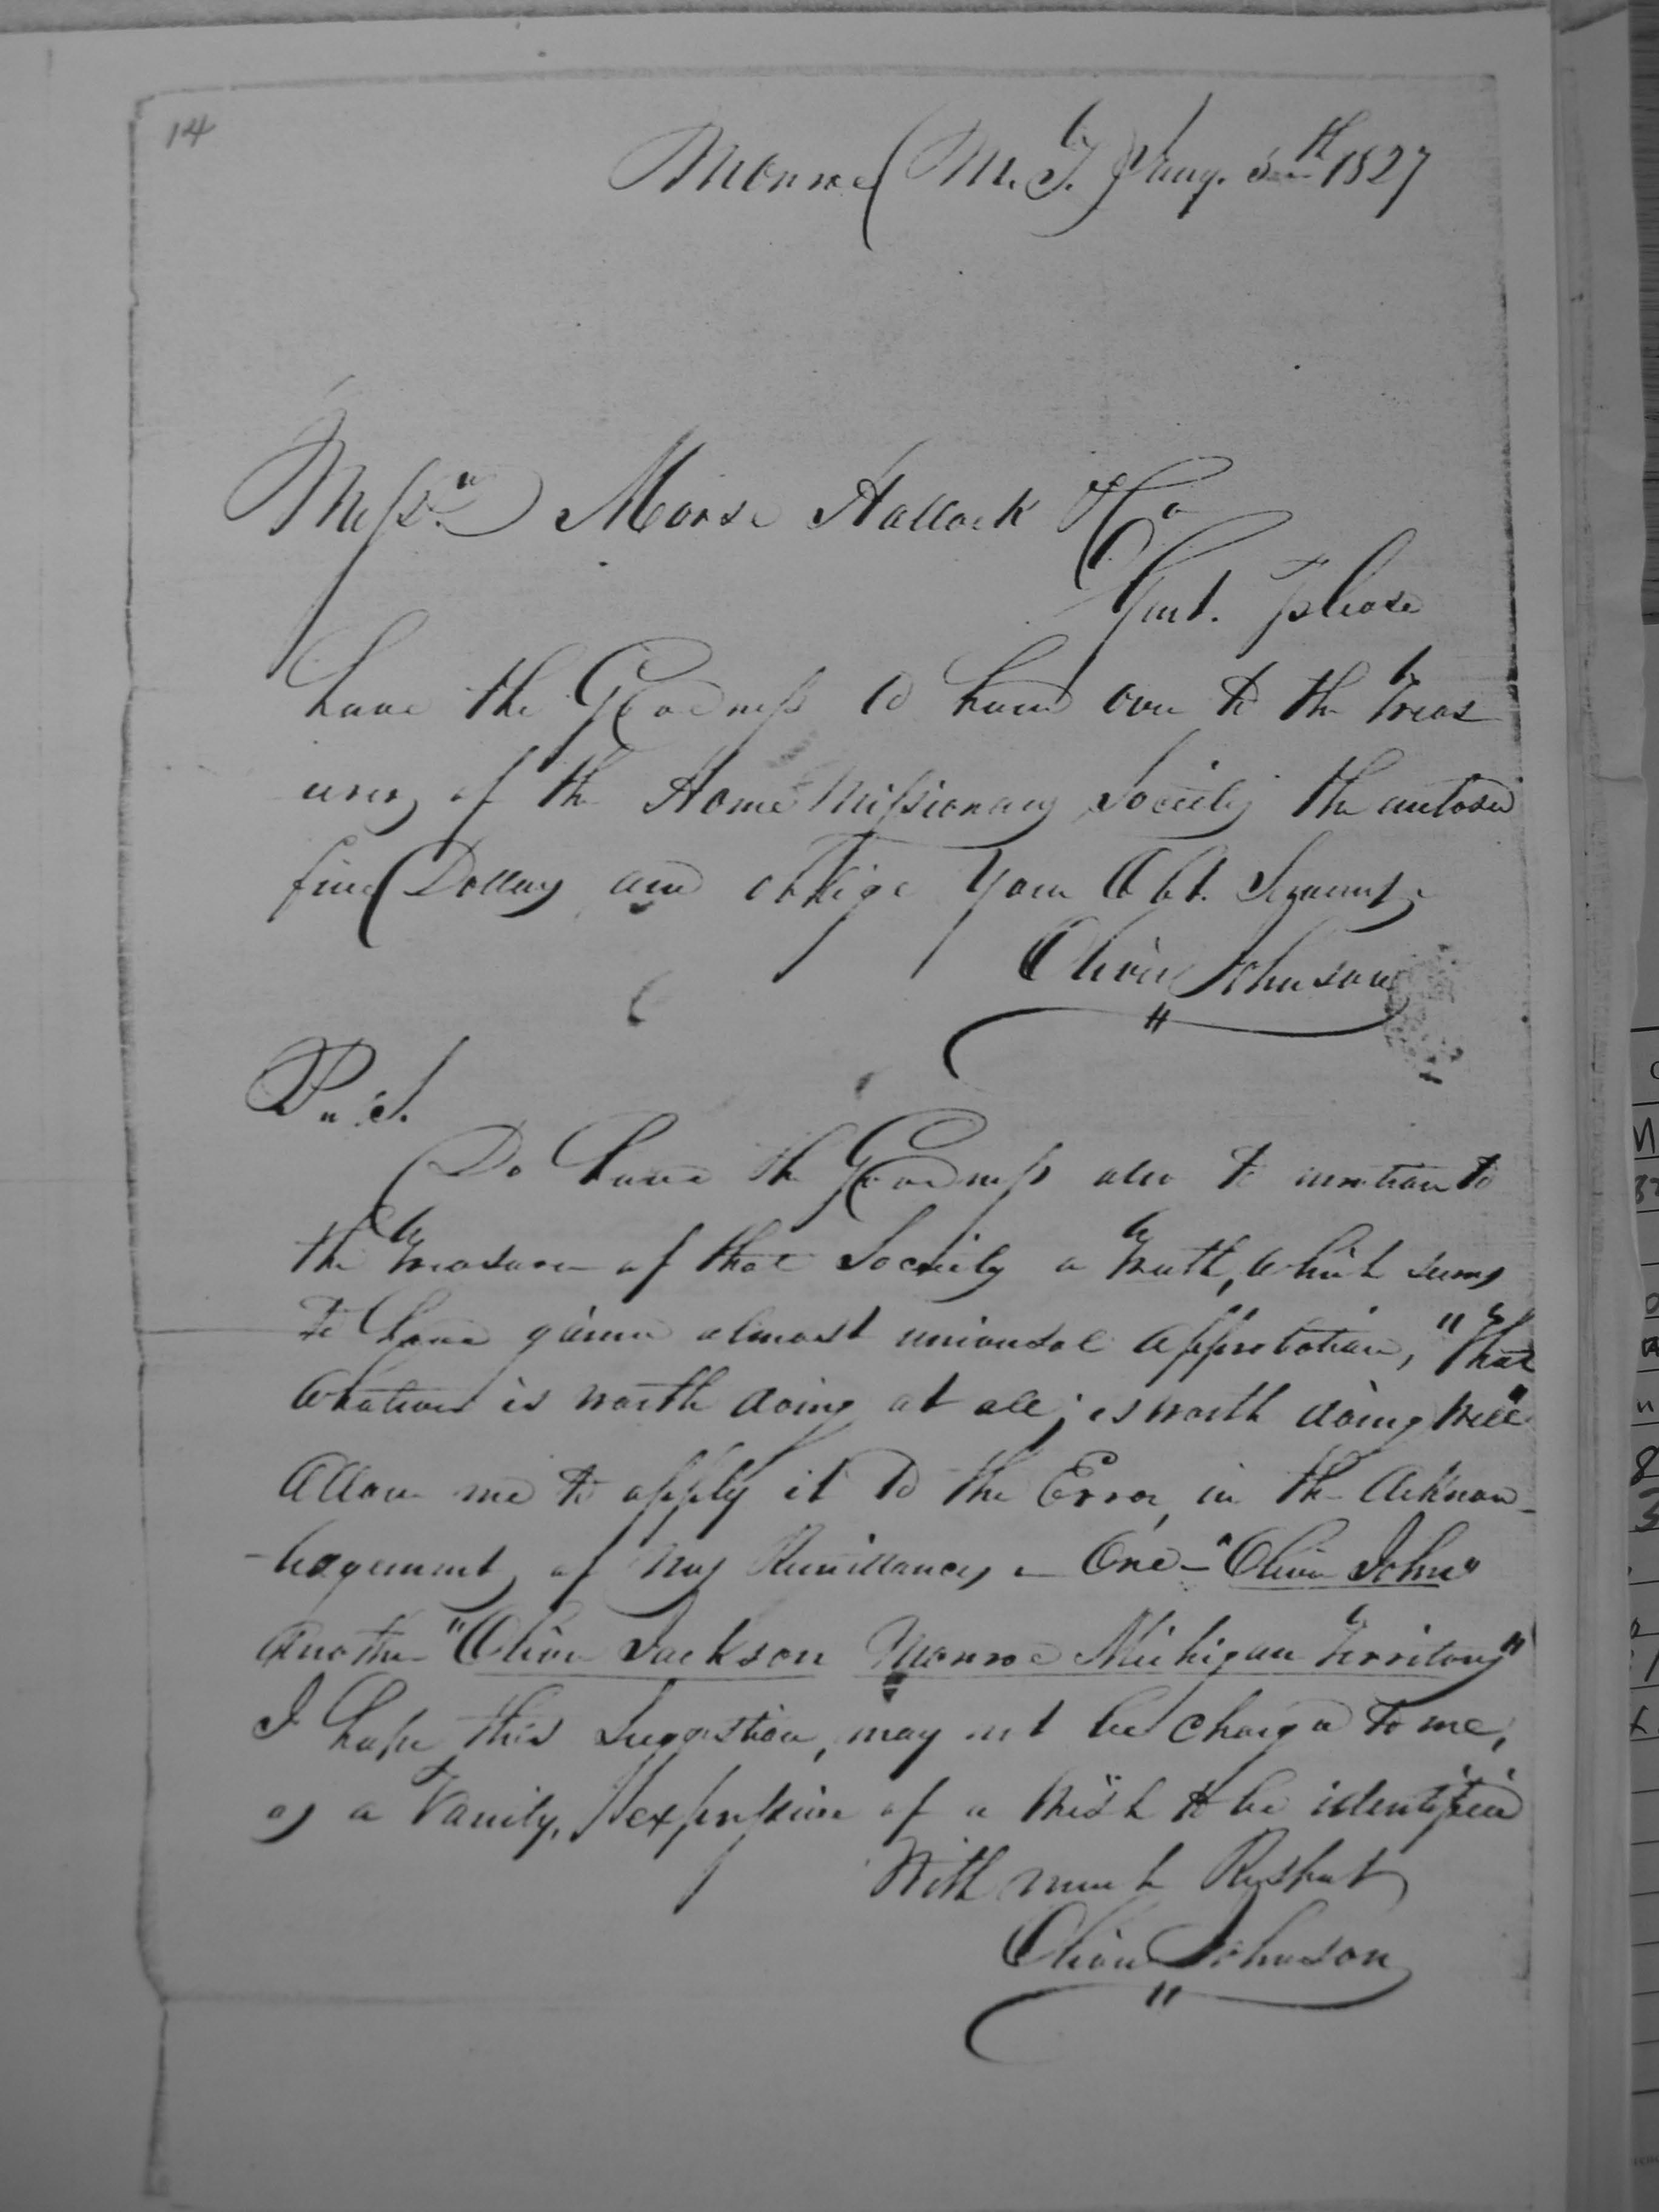 14
Monroe (M. T.) Jany. 5th 1827
Messrs Morse Hallock & Co
Gent. please
have the Goodness to hand over to the Treas
urer of the Home Missionary Society the enclosed
five Dollars and oblige your Obt. Servant
Oliver Johnson
P.. S.
Do have the Goodness also to mention to
the Treasurer of that Society a truth, which seems
to have gained almost universal approbation, "That
whatever is worth doing at all; is worth doing well"
Allow me to apply it to the Error, in the Acknow-
-ledgement, of my Remittances - One - "Oliver John"
Another "Oliver Jackson Monroe Michigan Territory"
I hope this Suggestion, may not be charged to me,
as a Vanity, expressive of a wish to be identified
With much Respect
Oliver Johnson